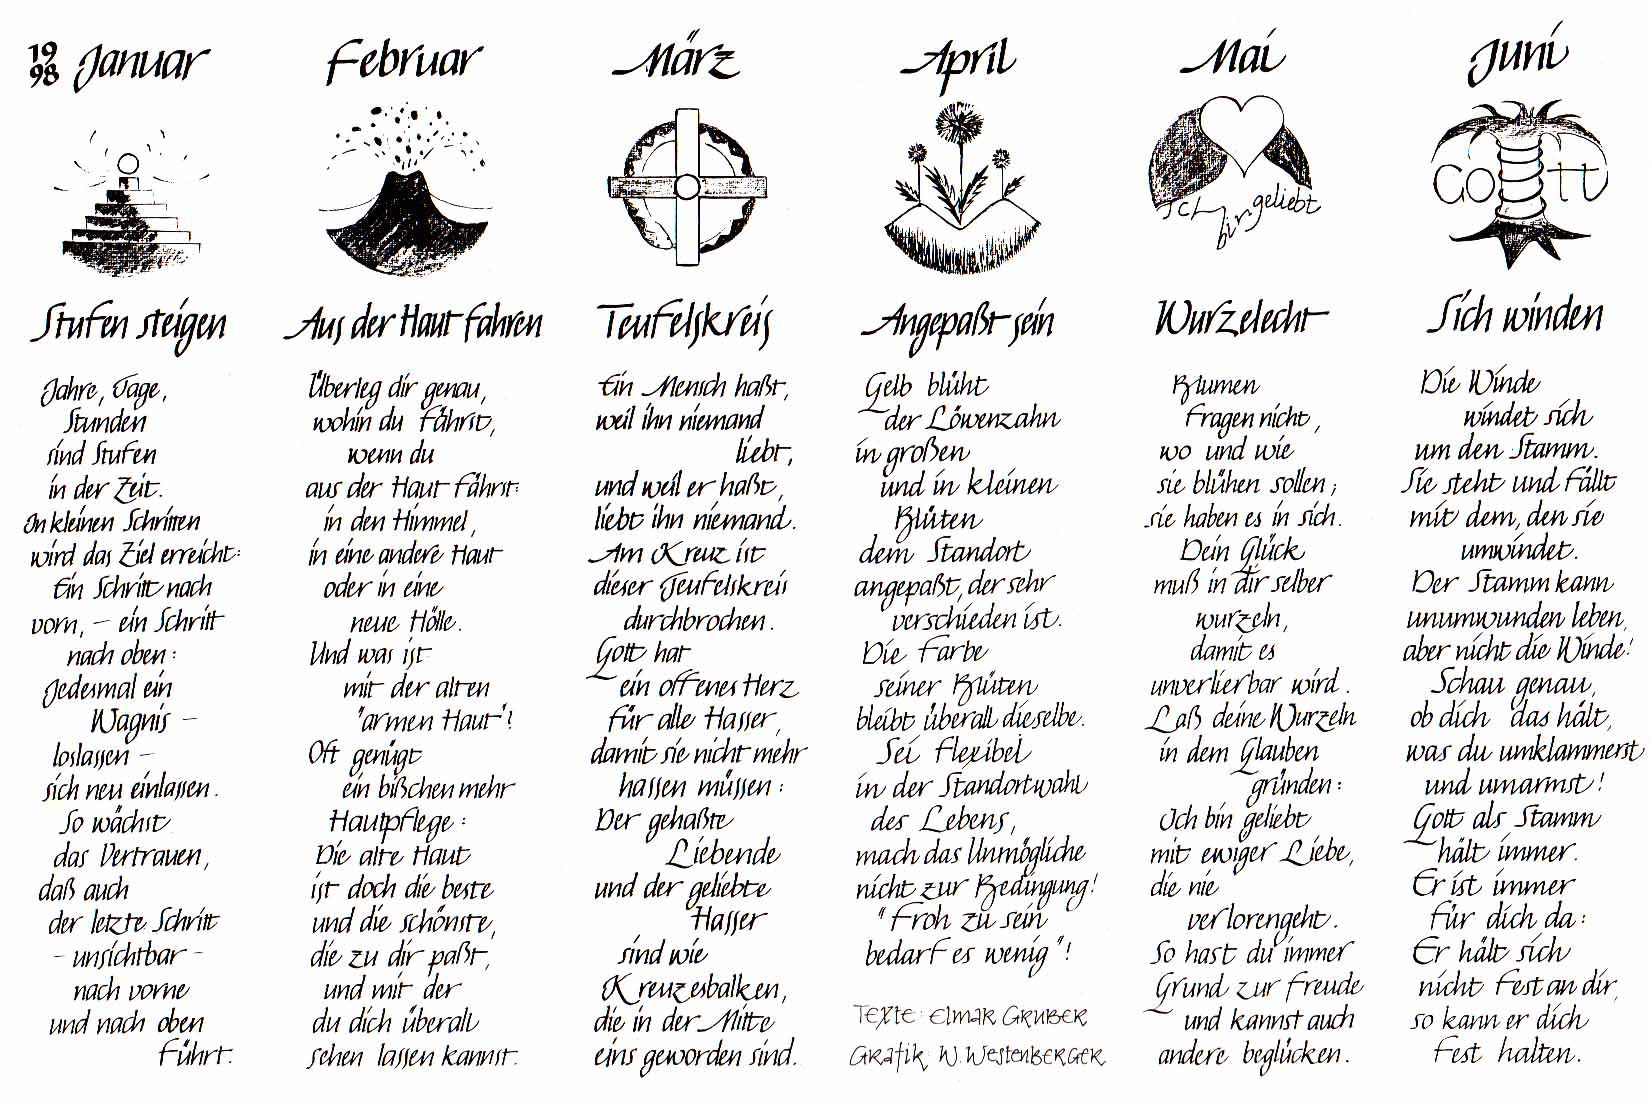 1998 Januar
Stufen steigen
Jahre, Tage,
Stunden
sind Stufen
in der Zeit.
In kleinen Schritten
wird das Ziel erreicht:
Ein Schritt nach
vorn, – ein Schritt
nach oben:
Jedesmal ein
Wagnis –
loslassen –
sich neu einlassen.
So wächst
das Vertrauen,
daß auch
der letzte Schritt
– unsichtbar –
nach vorne
und nach oben
führt.
Februar
Aus der Haut fahren
Überleg dir genau,
wohin du fährst,
wenn du
aus der Haut fährst:
in den Himmel,
in eine andere Haut
oder in eine
neue Hölle.
Und was ist
mit der alten
"armen Haut"!
Oft genügt
ein bißchen mehr
Hautpflege:
Die alte Haut
ist doch die beste
und die schönste,
die zu dir paßt,
und mit der
du dich überall
sehen lassen kannst.
März
Teufelskreis
Ein Mensch haßt,
weil ihn niemand
liebt,
und weil er haßt,
liebt ihn niemand.
Am Kreuz ist
dieser Teufelskreis
durchbrochen.
Gott hat
ein offenes Herz
für alle Hasser,
damit sie nicht mehr
hassen müssen:
Der gehaßte
Liebende
und der geliebte
Hasser
sind wie
Kreuzesbalken,
die in der Mitte
eins geworden sind.
April
Angepaßt sein
Gelb blüht
der Löwenzahn
in großen
und in kleinen
Blüten
dem Standort
angepaßt, der sehr
verschieden ist.
Die Farbe
seiner Blüten
bleibt überall dieselbe.
Sei flexibel
in der Standortwahl
des Lebens,
mach das Unmögliche
nicht zur Bedingung!
"Froh zu sein
bedarf es wenig"!
Texte: Elmar Gruber
Grafik: W. Westenberger
Mai
Ich bin geliebt
Wurzelecht
Blumen
fragen nicht,
wo und wie
sie blühen sollen;
sie haben es in sich.
Dein Glück
muß in dir selber
wurzeln,
damit es
unverlierbar wird.
Laß deine Wurzeln
in dem Glauben
gründen:
Ich bin geliebt
mit ewiger Liebe,
die nie
verlorengeht.
So hast du immer
Grund zur Freude
und kannst auch
andere beglücken.
Juni
Gott
Sich winden
Die Winde
windet sich
um den Stamm.
Sie steht und fällt
mit dem, den sie
umwindet.
Der Stamm kann
unumwunden leben,
aber nicht die Winde!
Schau genau,
ob dich das hält,
was du umklammerst
und umarmst!
Gott als Stamm
hält immer.
Er ist immer
für dich da:
Er hält sich
nicht fest an dir,
so kann er dich
fest halten.